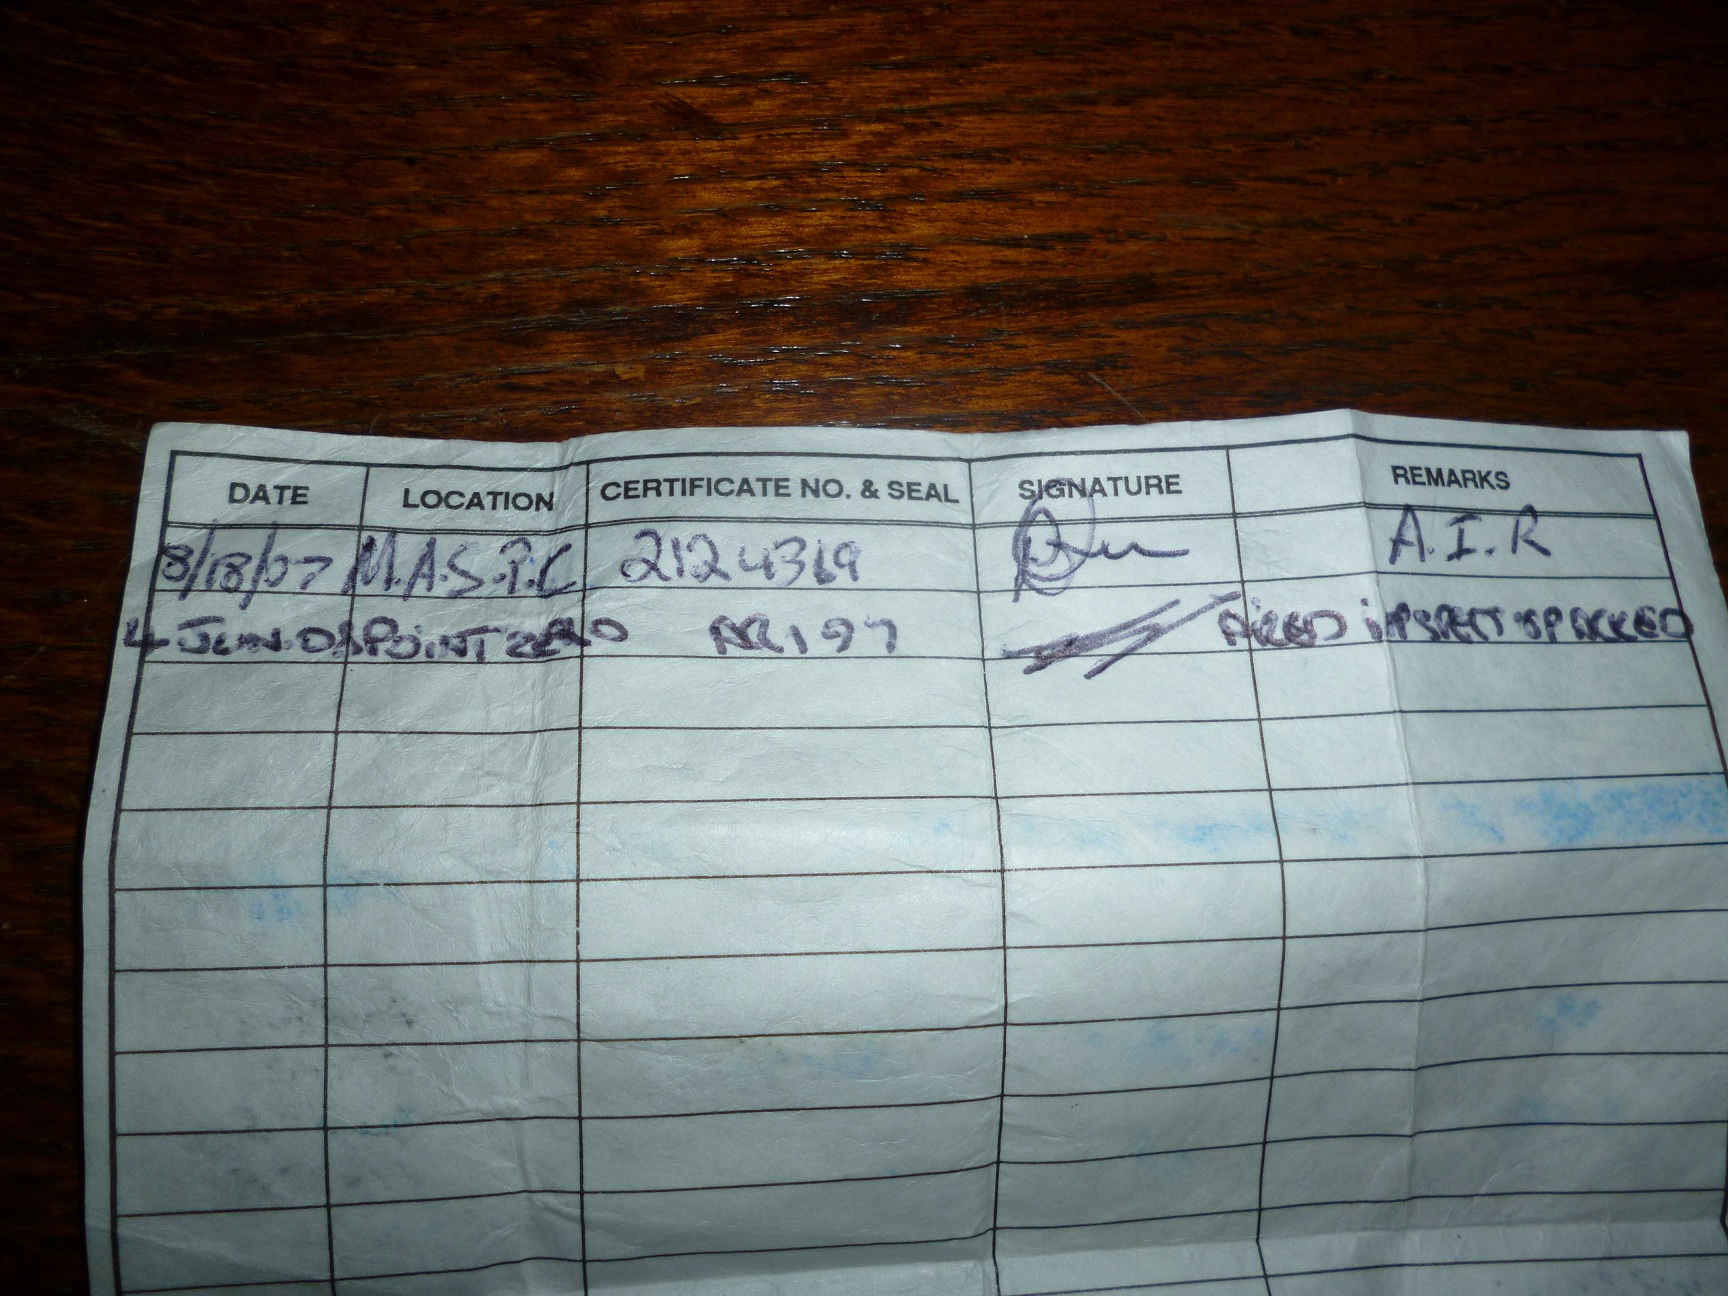 DATE LOCATION CERTIFICATE NO. & SEAL SIGNATURE REMARKS
8/18/07 M.A.S.P.C 2124369 A.I.R
4 JUN 08 POINT ZERO AR197 AIRED INSPECTED PACKED